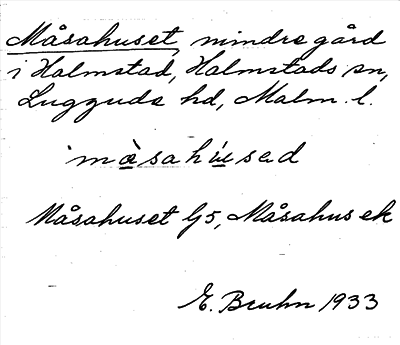 Måsahuset, mindre gård
i Halmstad, Halmstads sn,
Luggude hd, Malm. l.
måsahúsad
Måsahuset G5, Måsahus ek
E. Bruhn 1933